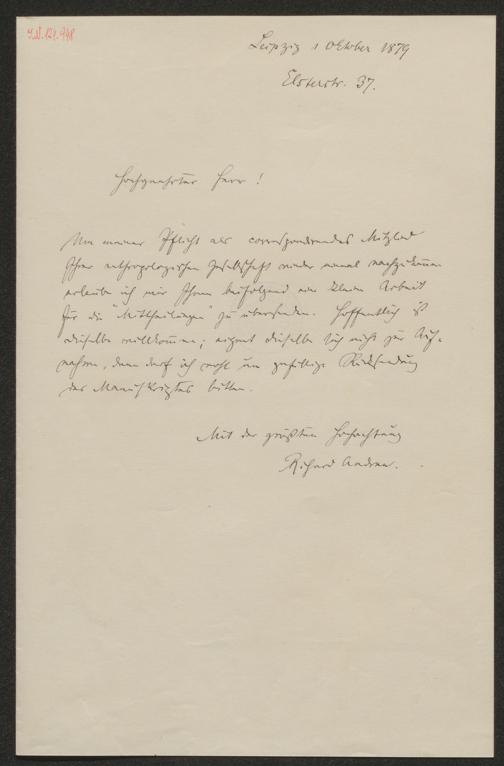 I.N. 121.948
Leipzig 1 Oktober 1879
Elsterstr. 37.
Hochgeehrter Herr!
Um meiner Pflicht als correspondirendes Mitglied
Ihrer anthropologischen Gesellschaft wieder einmal nachzukommen
erlaube ich mir Ihnen beifolgend eine kleine Arbeit
für die „Mittheilungen“ zu übersenden. Hoffentlich ist
dieselbe willkommen; eignet dieselbe sich nicht zur Auf-
nahme, dann darf ich wohl um gefällige Rücksendung
des Manuskriptes bitten.
Mit der größten Hochachtung
Richard Andree.